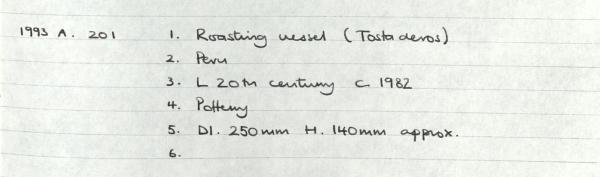 1993 A. 201 1. Roasting vessel (Tostaderos)
2. Peru
3. L 20th century c 1982
4. Pottery
5. DI. 250mm H. 140mm approx.
6.